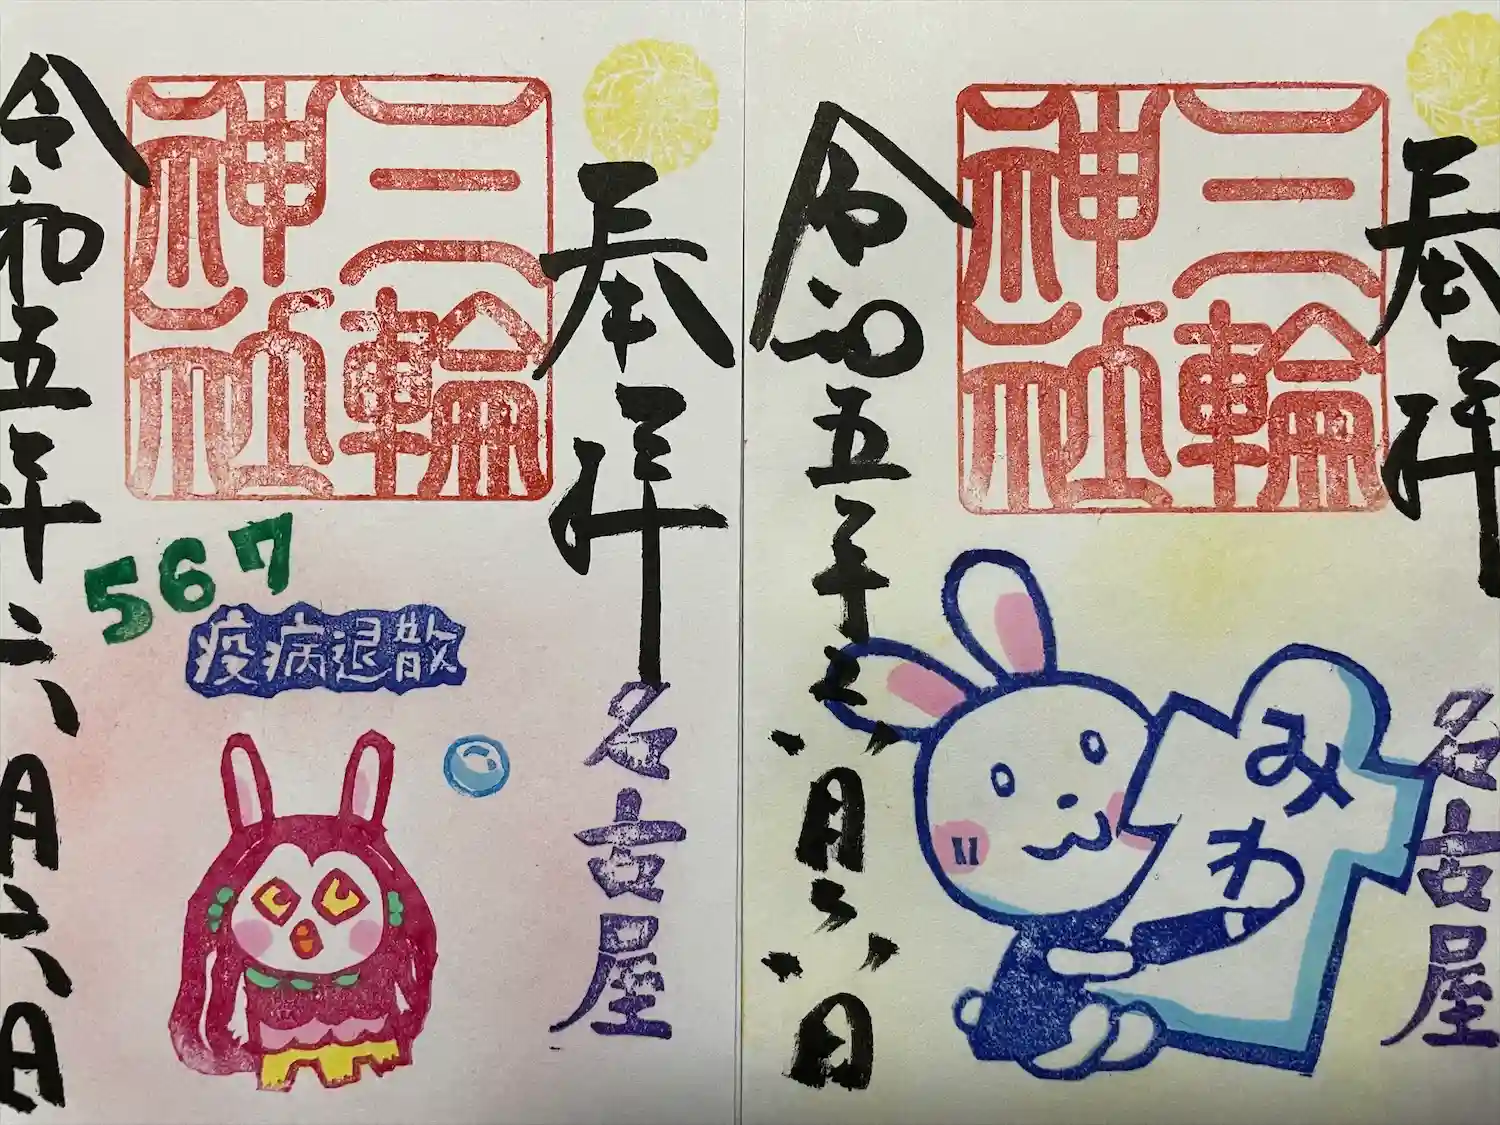 奉拝
名古屋
三輪
神社
567
疫病退散
令和五年六月六日
奉拝
名古屋
三輪
神社
みわ
令和五年六月六日